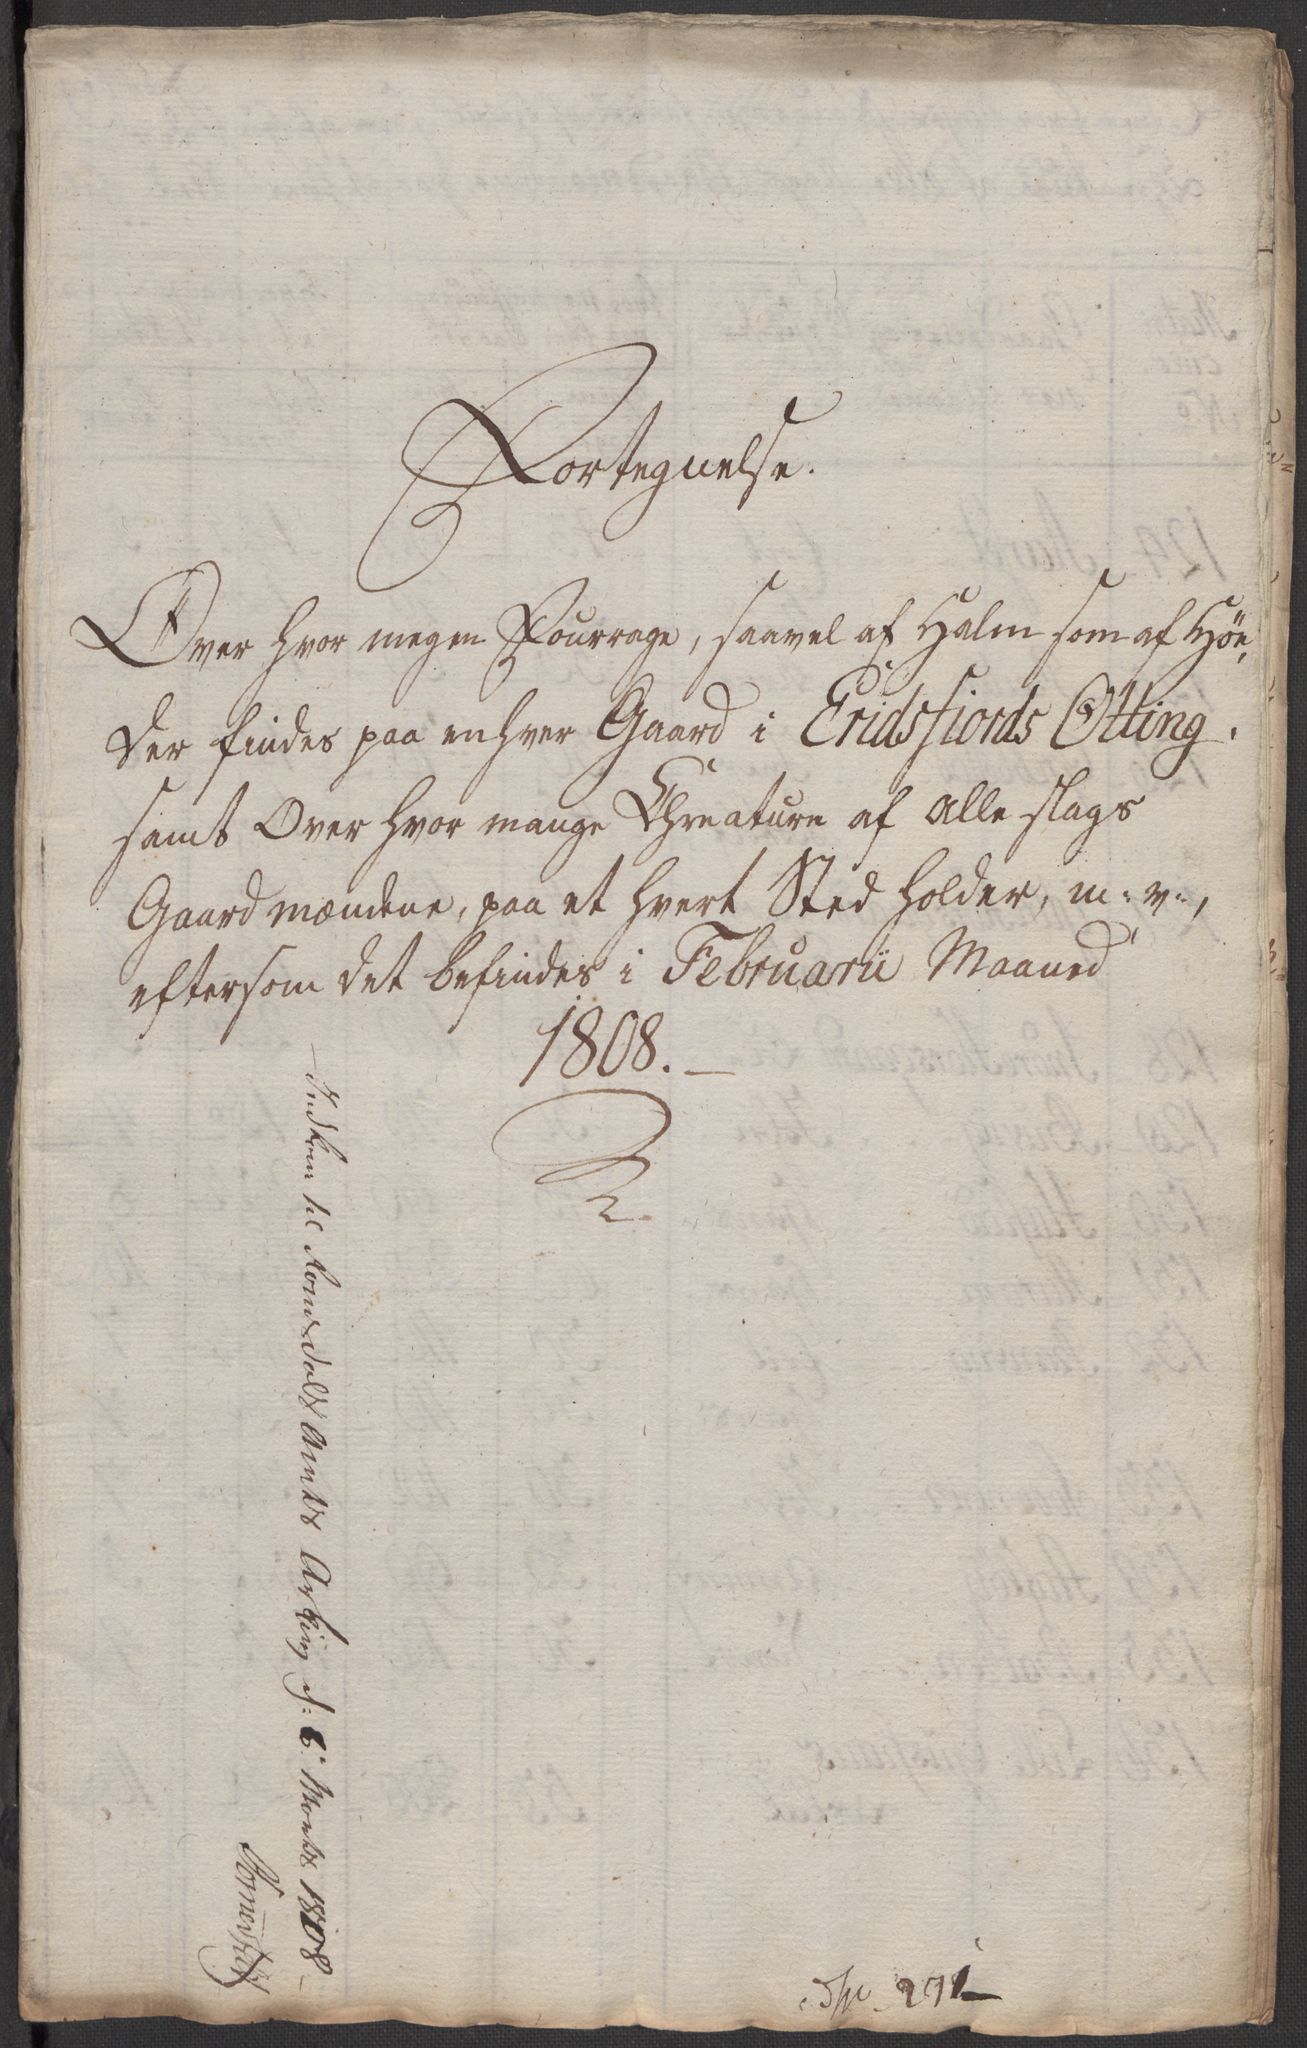 Fortegnelse.
Over hvor megen Fourrage, saavel af Halm som af Höe,
der findes paa enhver Gaard i Eridsfiords Otting.
samt Over hvor mange Chreature af alle slags
Gaardmændene, paa et hvert Sted holder, m: v:,
eftersom det befindes i Februarii Maaned
1808. —
Indkom til Romsdals Amts Arkiv d: 6: Marts 1808 —
271